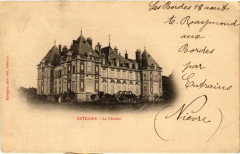 Les Bordes 18 aout
A. Raymond
aux
Bordes
par
Entrains
(Nièvre)
ENTRAINS. - Le Château